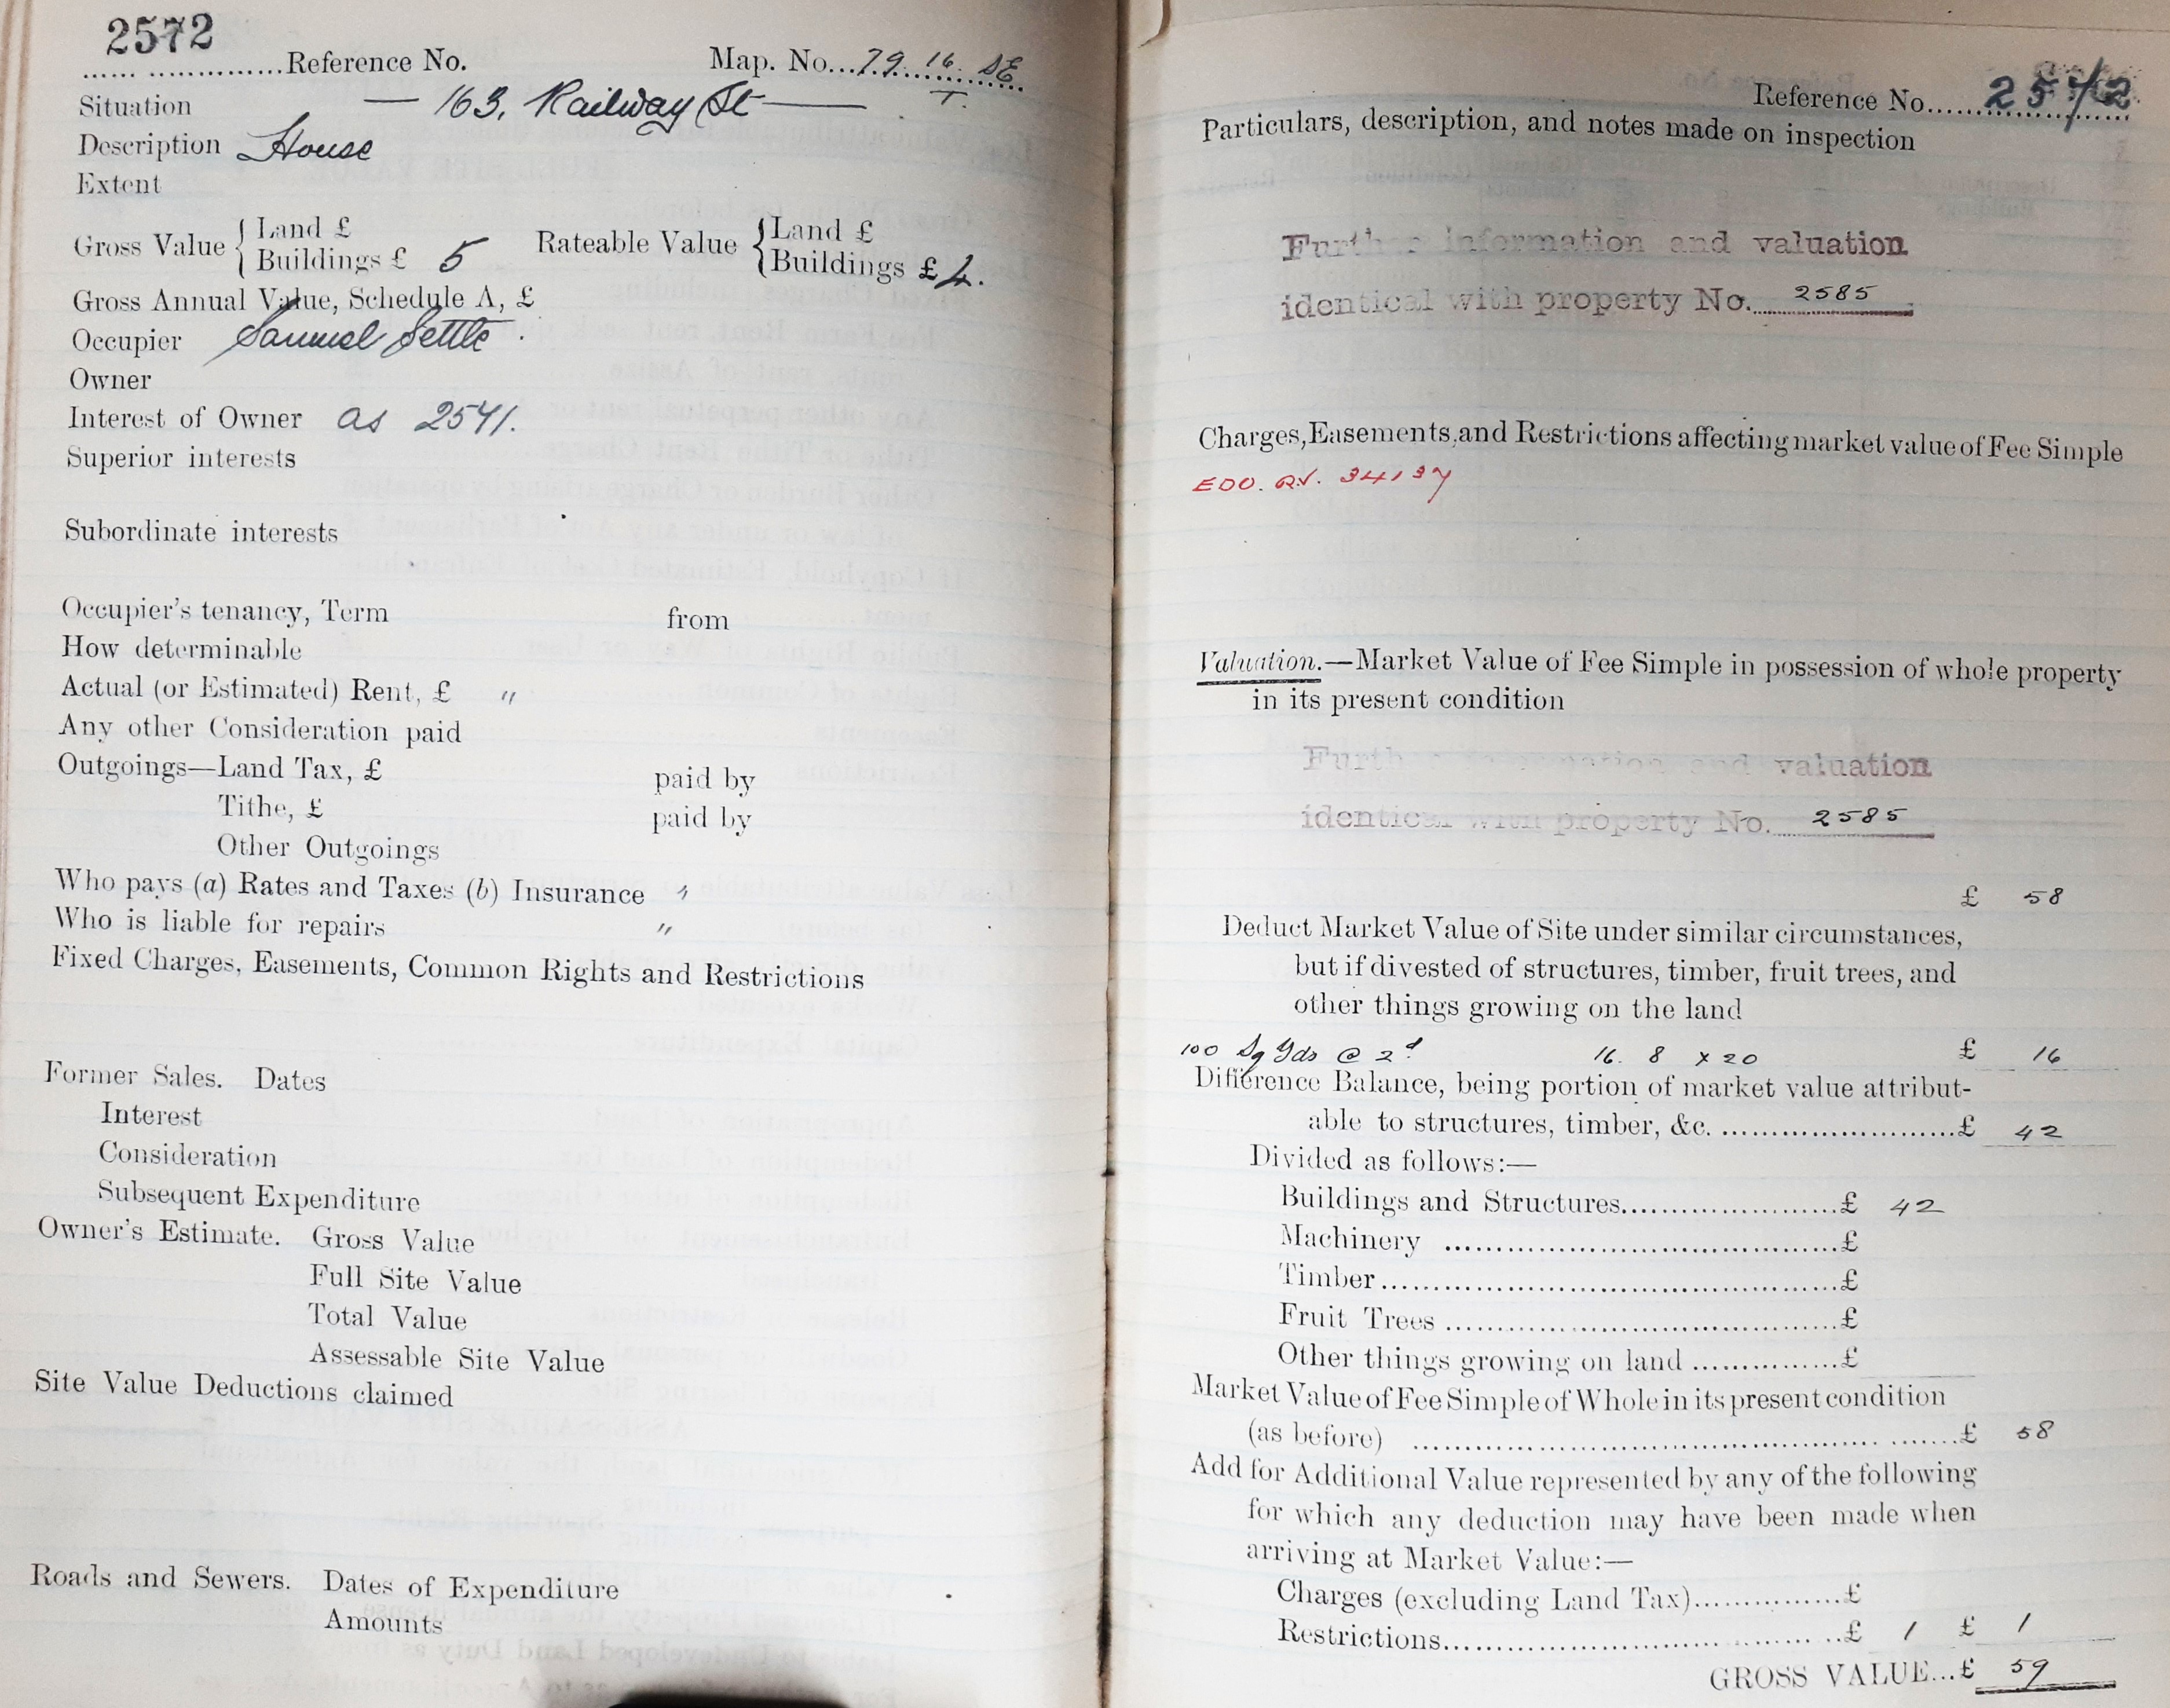 2572
.....................Reference No. Map. No...79. 16. SE
T.
Situation — 163, Railway St —
Description House
Extent
Gross Value { Land £ Rateable Value { Land £
Buildings £ 5 Buildings £ 4.
Gross Annual Value, Schedule A, £
Occupier Samuel Settle.
Owner
Interest of Owner as 2541.
Superior interests
Subordinate interests
Occupier's tenancy, Term from
How determinable
Actual (or Estimated) Rent, £ "
Any other Consideration paid
Outgoings—Land Tax, £ paid by
Tithe, £ paid by
Other Outgoings
Who pays (a) Rates and Taxes (b) Insurance "
Who is liable for repairs "
Fixed Charges, Easements, Common Rights and Restrictions
Former Sales. Dates
Interest
Consideration
Subsequent Expenditure
Owner's Estimate. Gross Value
Full Site Value
Total Value
Assessable Site Value
Site Value Deductions claimed
Roads and Sewers. Dates of Expenditure
Amounts
Reference No......2572
Particulars, description, and notes made on inspection
Further information and valuation
identical with property No. 2585
Charges, Easements, and Restrictions affecting market value of Fee Simple
EDO. 34137
Valuation.—Market Value of Fee Simple in possession of whole property
in its present condition
Further information and valuation
identical with property No. 2585
£ 58
Deduct Market Value of Site under similar circumstances,
but if divested of structures, timber, fruit trees, and
other things growing on the land
100 Sq Yds @ 2d 16. 8 x 20 £ 16
Difference Balance, being portion of market value attribut-
able to structures, timber, &c. ..........................£ 42
Divided as follows:—
Buildings and Structures.......................£ 42
Machinery .........................................£
Timber................................................£
Fruit Trees .........................................£
Other things growing on land ...............£
Market Value of Fee Simple of Whole in its present condition
(as before) .......................................................£ 58
Add for Additional Value represented by any of the following
for which any deduction may have been made when
arriving at Market Value:—
Charges (excluding Land Tax)...............£
Restrictions.........................................£ 1 £ 1
GROSS VALUE...£ 59